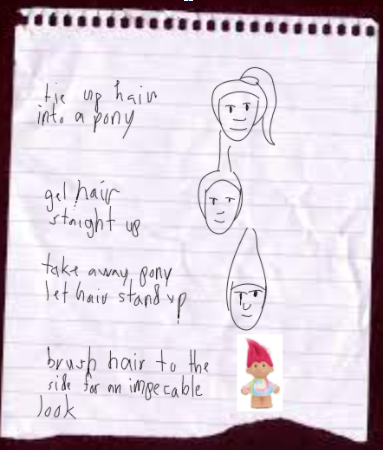 tie up hair
into a pony
gel hair
straight up
take away pony
let hair stand up
brush hair to the
side for an impecable
look